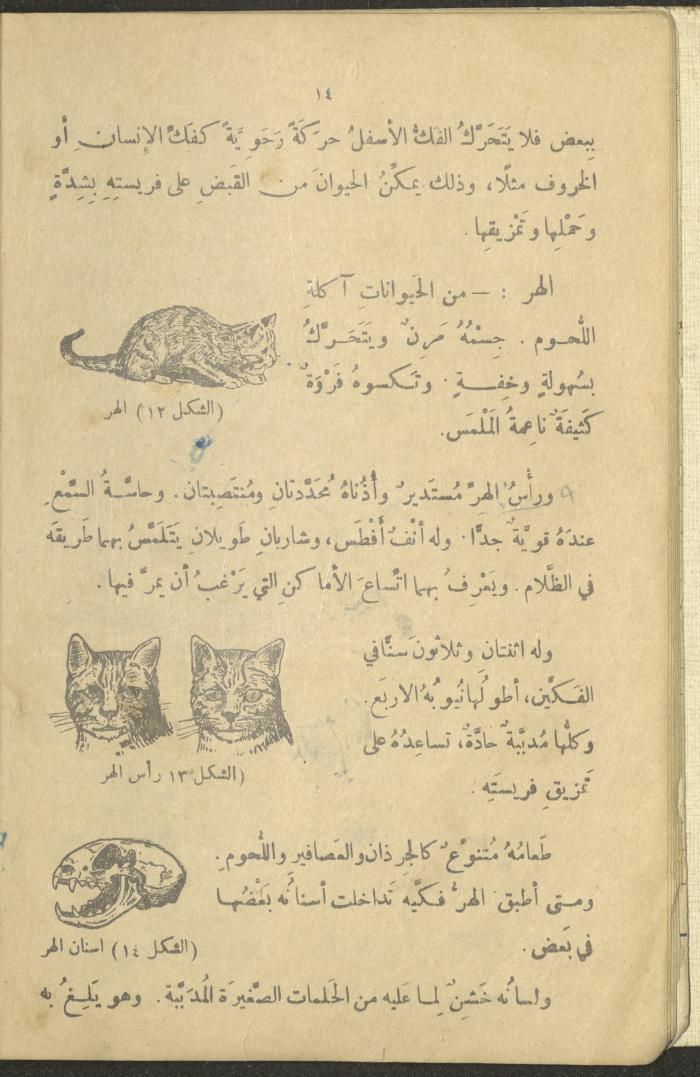 ١٤
ببعض فلا يَتَحَرَّكُ الفكُّ الأسفلُ حرَكَةً رَحَوِيَّةً كفَكِّ الإنسانِ أو
الخروف مثلًا، وذلك يمكِّنُ الحيوانَ من القَبضِ على فريستِهِ بِشِدَّةٍ
وحَمْلِها وتَمْزيقِها .
الهر : — من الحَيواناتِ آكلةِ
اللُّحوم . جِسْمُهُ مَرِنٌ ويَتَحَرَّكُ
بسُهولةٍ وخِفةٍ . وتَكسوهُ فَرْوَةٌ
كَثيفَةٌ ناعِمةُ المَلْمَس.
(الشكل ١٢) الهر
ورأْسُ الهِرِّ مُستَديرٌ وأُذُناهُ مُحَدَّدتانِ ومُنتَصِبتان . وحاسَّةُ السَّمْعِ
عندَهُ قويَّةٌ جدًّا . وله أنْفٌ أَفْطَس، وشاربانِ طَويلانِ يَتَلَمَّسُ بهما طَريقَه
في الظَّلام . ويَعْرِفُ بهما اتِّساعَ الأماكنِ التي يَرْغبُ أن يمرَّ فيها .
وله اثنتان وثلاثونَ سنًّا في
الفكَّيْن، أطولُها نُيوبُهُ الاربَع.
وكلُّها مُدبَّبةٌ حادَّةٌ، تساعِدُهُ على
تَمْزيقِ فريستَه .
(الشكل ١٣ رأس الهر
طَعامُهُ مُتنوِّعٌ كالجرذان والعَصافير واللُّحومِ .
ومتى أطبق الهرُّ فكَّيه تَداخلت أسنانُه بَعْضُها
في بَعض .
(الشكل ١٤) اسنان الهر
ولسانُه خَشِنٌ لِما عَليه من الحَلمات الصَّغيرَة المُدَبَّبة . وهو يَلِغُ به